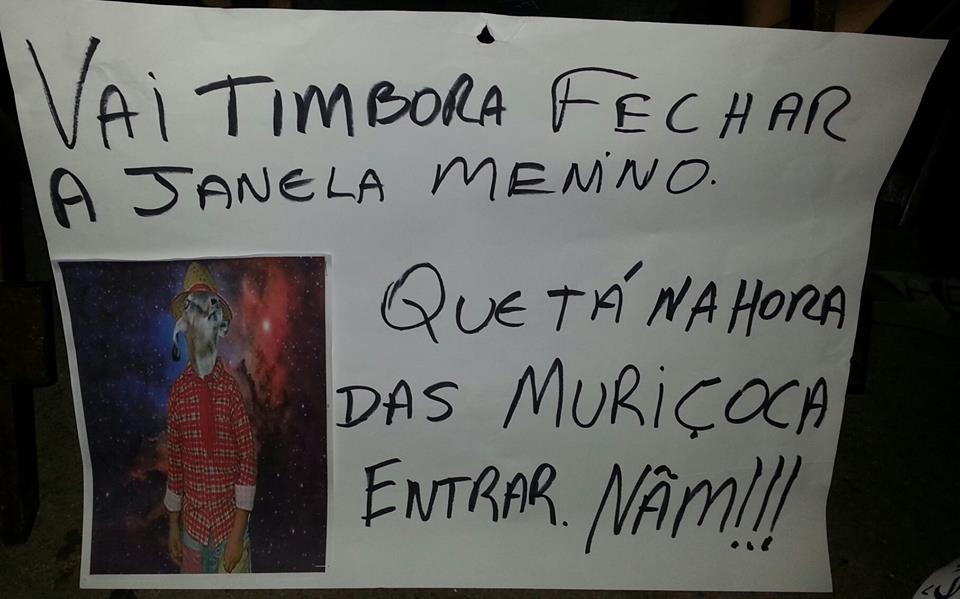 VAI TIMBORA FECHAR
A JANELA MENINO.
QUE TÁ NA HORA
DAS MURIÇOCA
ENTRAR. NÃM!!!